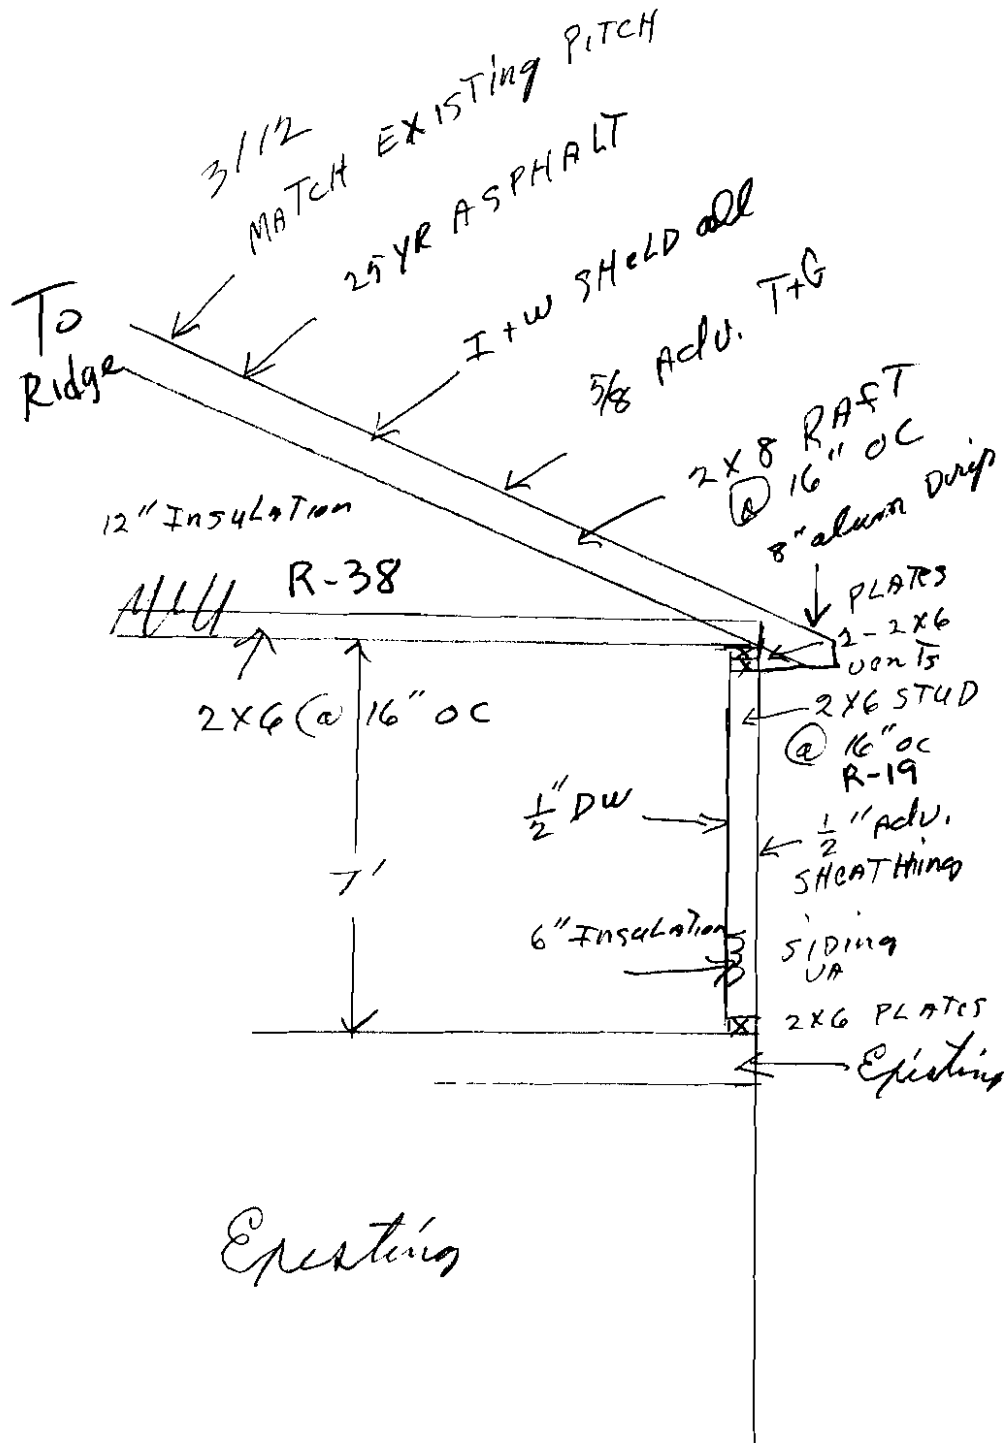 3/12
MATCH EXISTING PITCH
25 YR ASPHALT
I + W SHeLD all
5/8 Adv. T+G
2 X 8 RAFT
@ 16" OC
8" alum Drip
To
Ridge
12" InsuLATion
R-38
PLATES
2-2X6
venTs
2X6 @ 16" OC
2X6 STUD
@ 16" OC
R-19
1/2" DW
1/2" Adv.
SHEATHing
7'
6" InsuLATion
SiDing
2X6 PLATES
Existing
Existing